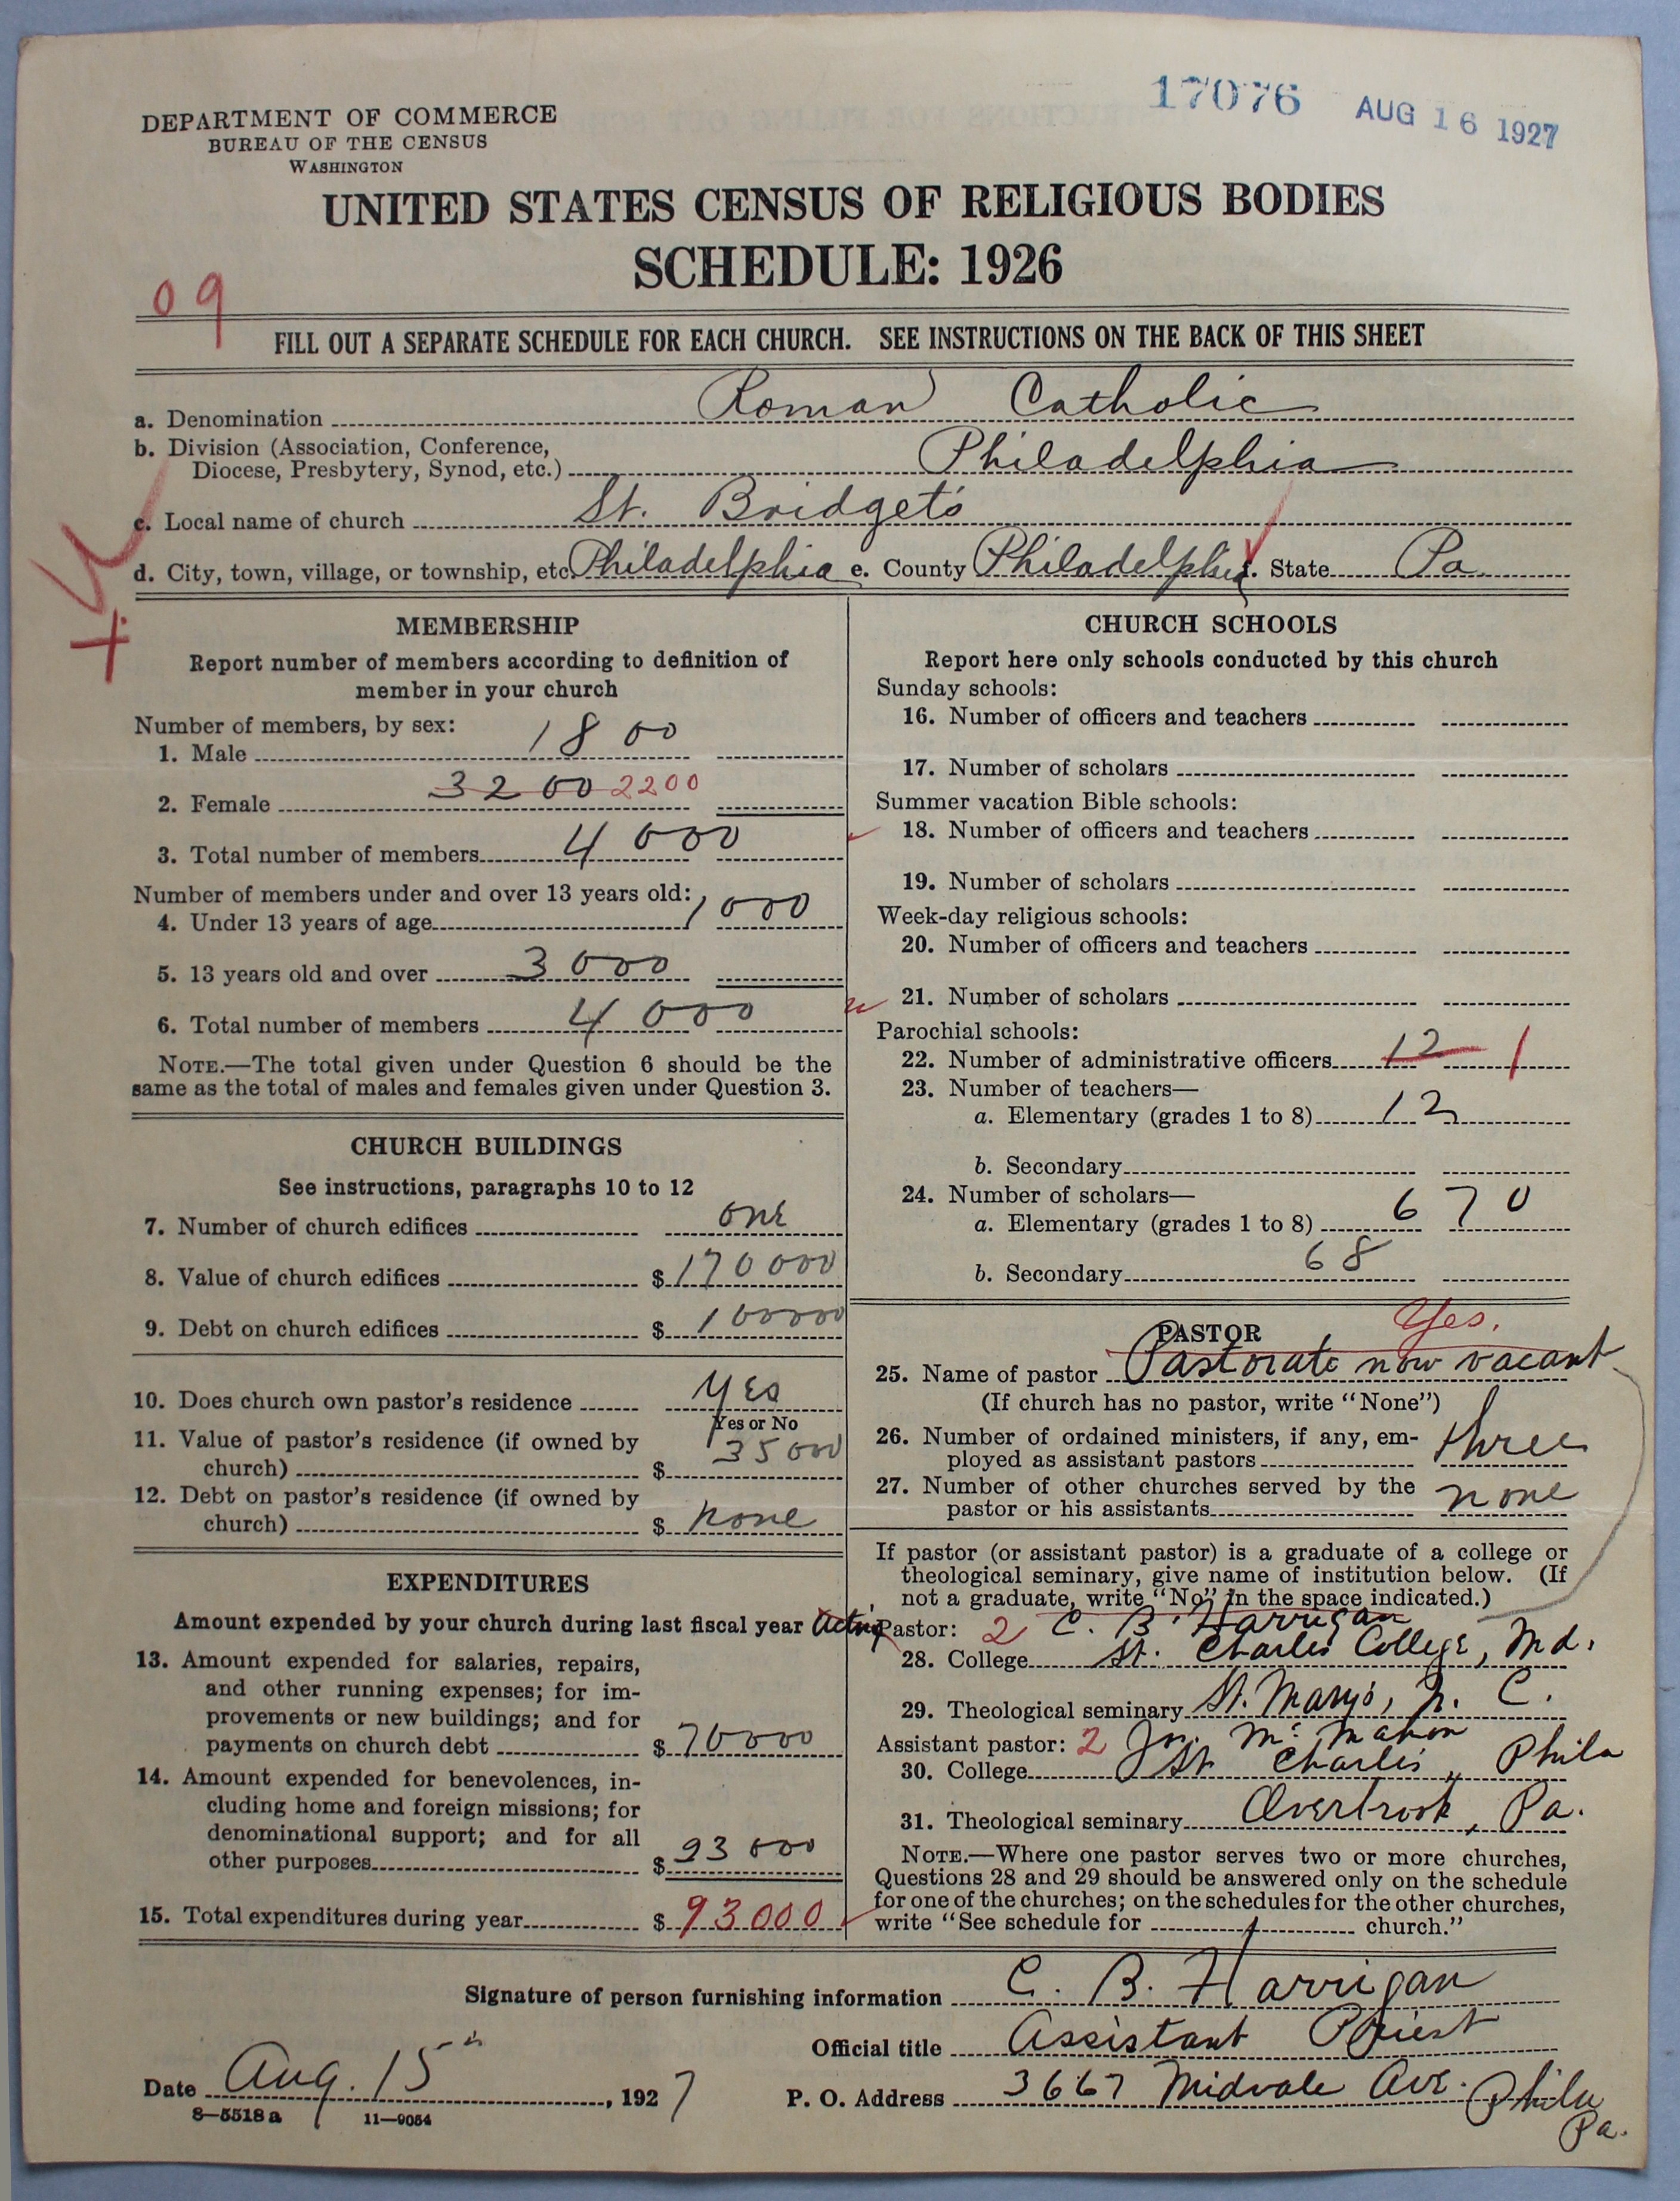 17076 AUG 16 1927
DEPARTMENT OF COMMERCE
BUREAU OF THE CENSUS
WASHINGTON
UNITED STATES CENSUS OF RELIGIOUS BODIES
SCHEDULE: 1926
09
FILL OUT A SEPARATE SCHEDULE FOR EACH CHURCH. SEE INSTRUCTIONS ON THE BACK OF THIS SHEET
a. Denomination Roman Catholic
b. Division (Association, Conference,
Diocese, Presbytery, Synod, etc.) Philadelphia
c. Local name of church St. Bridget's
d. City, town, village, or township, etc. Philadelphia e. County Philadelphia f. State Pa.
MEMBERSHIP
Report number of members according to definition of
member in your church
Number of members, by sex:
1. Male 1800
2. Female 3200 2200
3. Total number of members 4000
Number of members under and over 13 years old:
4. Under 13 years of age 1000
5. 13 years old and over 3000
6. Total number of members 4000
NOTE.—The total given under Question 6 should be the
same as the total of males and females given under Question 3.
CHURCH BUILDINGS
See instructions, paragraphs 10 to 12
7. Number of church edifices one
8. Value of church edifices $ 170000
9. Debt on church edifices $ 100000
10. Does church own pastor's residence yes
Yes or No
11. Value of pastor's residence (if owned by
church) $ 35000
12. Debt on pastor's residence (if owned by
church) $ none
EXPENDITURES
Amount expended by your church during last fiscal year
13. Amount expended for salaries, repairs,
and other running expenses; for im-
provements or new buildings; and for
payments on church debt $ 70000
14. Amount expended for benevolences, in-
cluding home and foreign missions; for
denominational support; and for all
other purposes $ 23000
15. Total expenditures during year $ 93000
CHURCH SCHOOLS
Report here only schools conducted by this church
Sunday schools:
16. Number of officers and teachers
17. Number of scholars
Summer vacation Bible schools:
18. Number of officers and teachers
19. Number of scholars
Week-day religious schools:
20. Number of officers and teachers
21. Number of scholars
Parochial schools:
22. Number of administrative officers 12 1
23. Number of teachers—
a. Elementary (grades 1 to 8) 12
b. Secondary
24. Number of scholars—
a. Elementary (grades 1 to 8) 670
b. Secondary 68
PASTOR Yes.
25. Name of pastor Pastorate now vacant
(If church has no pastor, write "None")
26. Number of ordained ministers, if any, em-
ployed as assistant pastors three
27. Number of other churches served by the
pastor or his assistants none
If pastor (or assistant pastor) is a graduate of a college or
theological seminary, give name of institution below. (If
not a graduate, write "No" in the space indicated.)
Acting Pastor: 2 C. B. Harrigan
28. College St. Charles College, Md.
29. Theological seminary St. Mary's, N. C.
Assistant pastor: 2 Jn. McMahon
30. College St Charles, Phila
31. Theological seminary Overbrook, Pa.
NOTE.—Where one pastor serves two or more churches,
Questions 28 and 29 should be answered only on the schedule
for one of the churches; on the schedules for the other churches,
write "See schedule for church."
Signature of person furnishing information C. B. Harrigan
Official title Assistant Priest
Date Aug. 15th, 1927 P. O. Address 3667 Midvale Ave. Phila
Pa.
8—5518a 11—9054